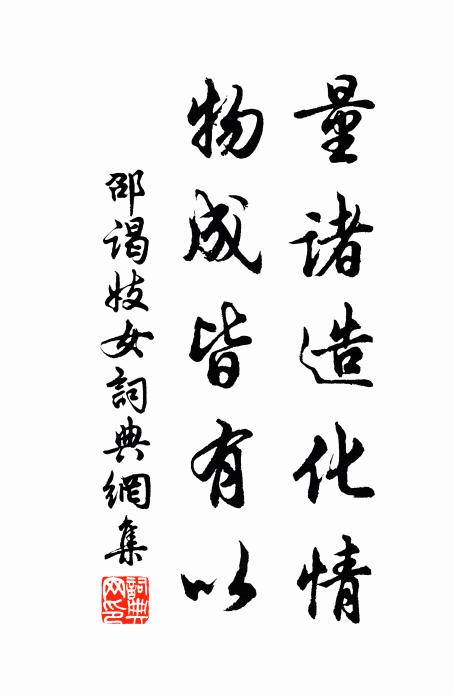 量諸造化情
物成皆有以
邵謁妓女詞典網集
詞典
网印